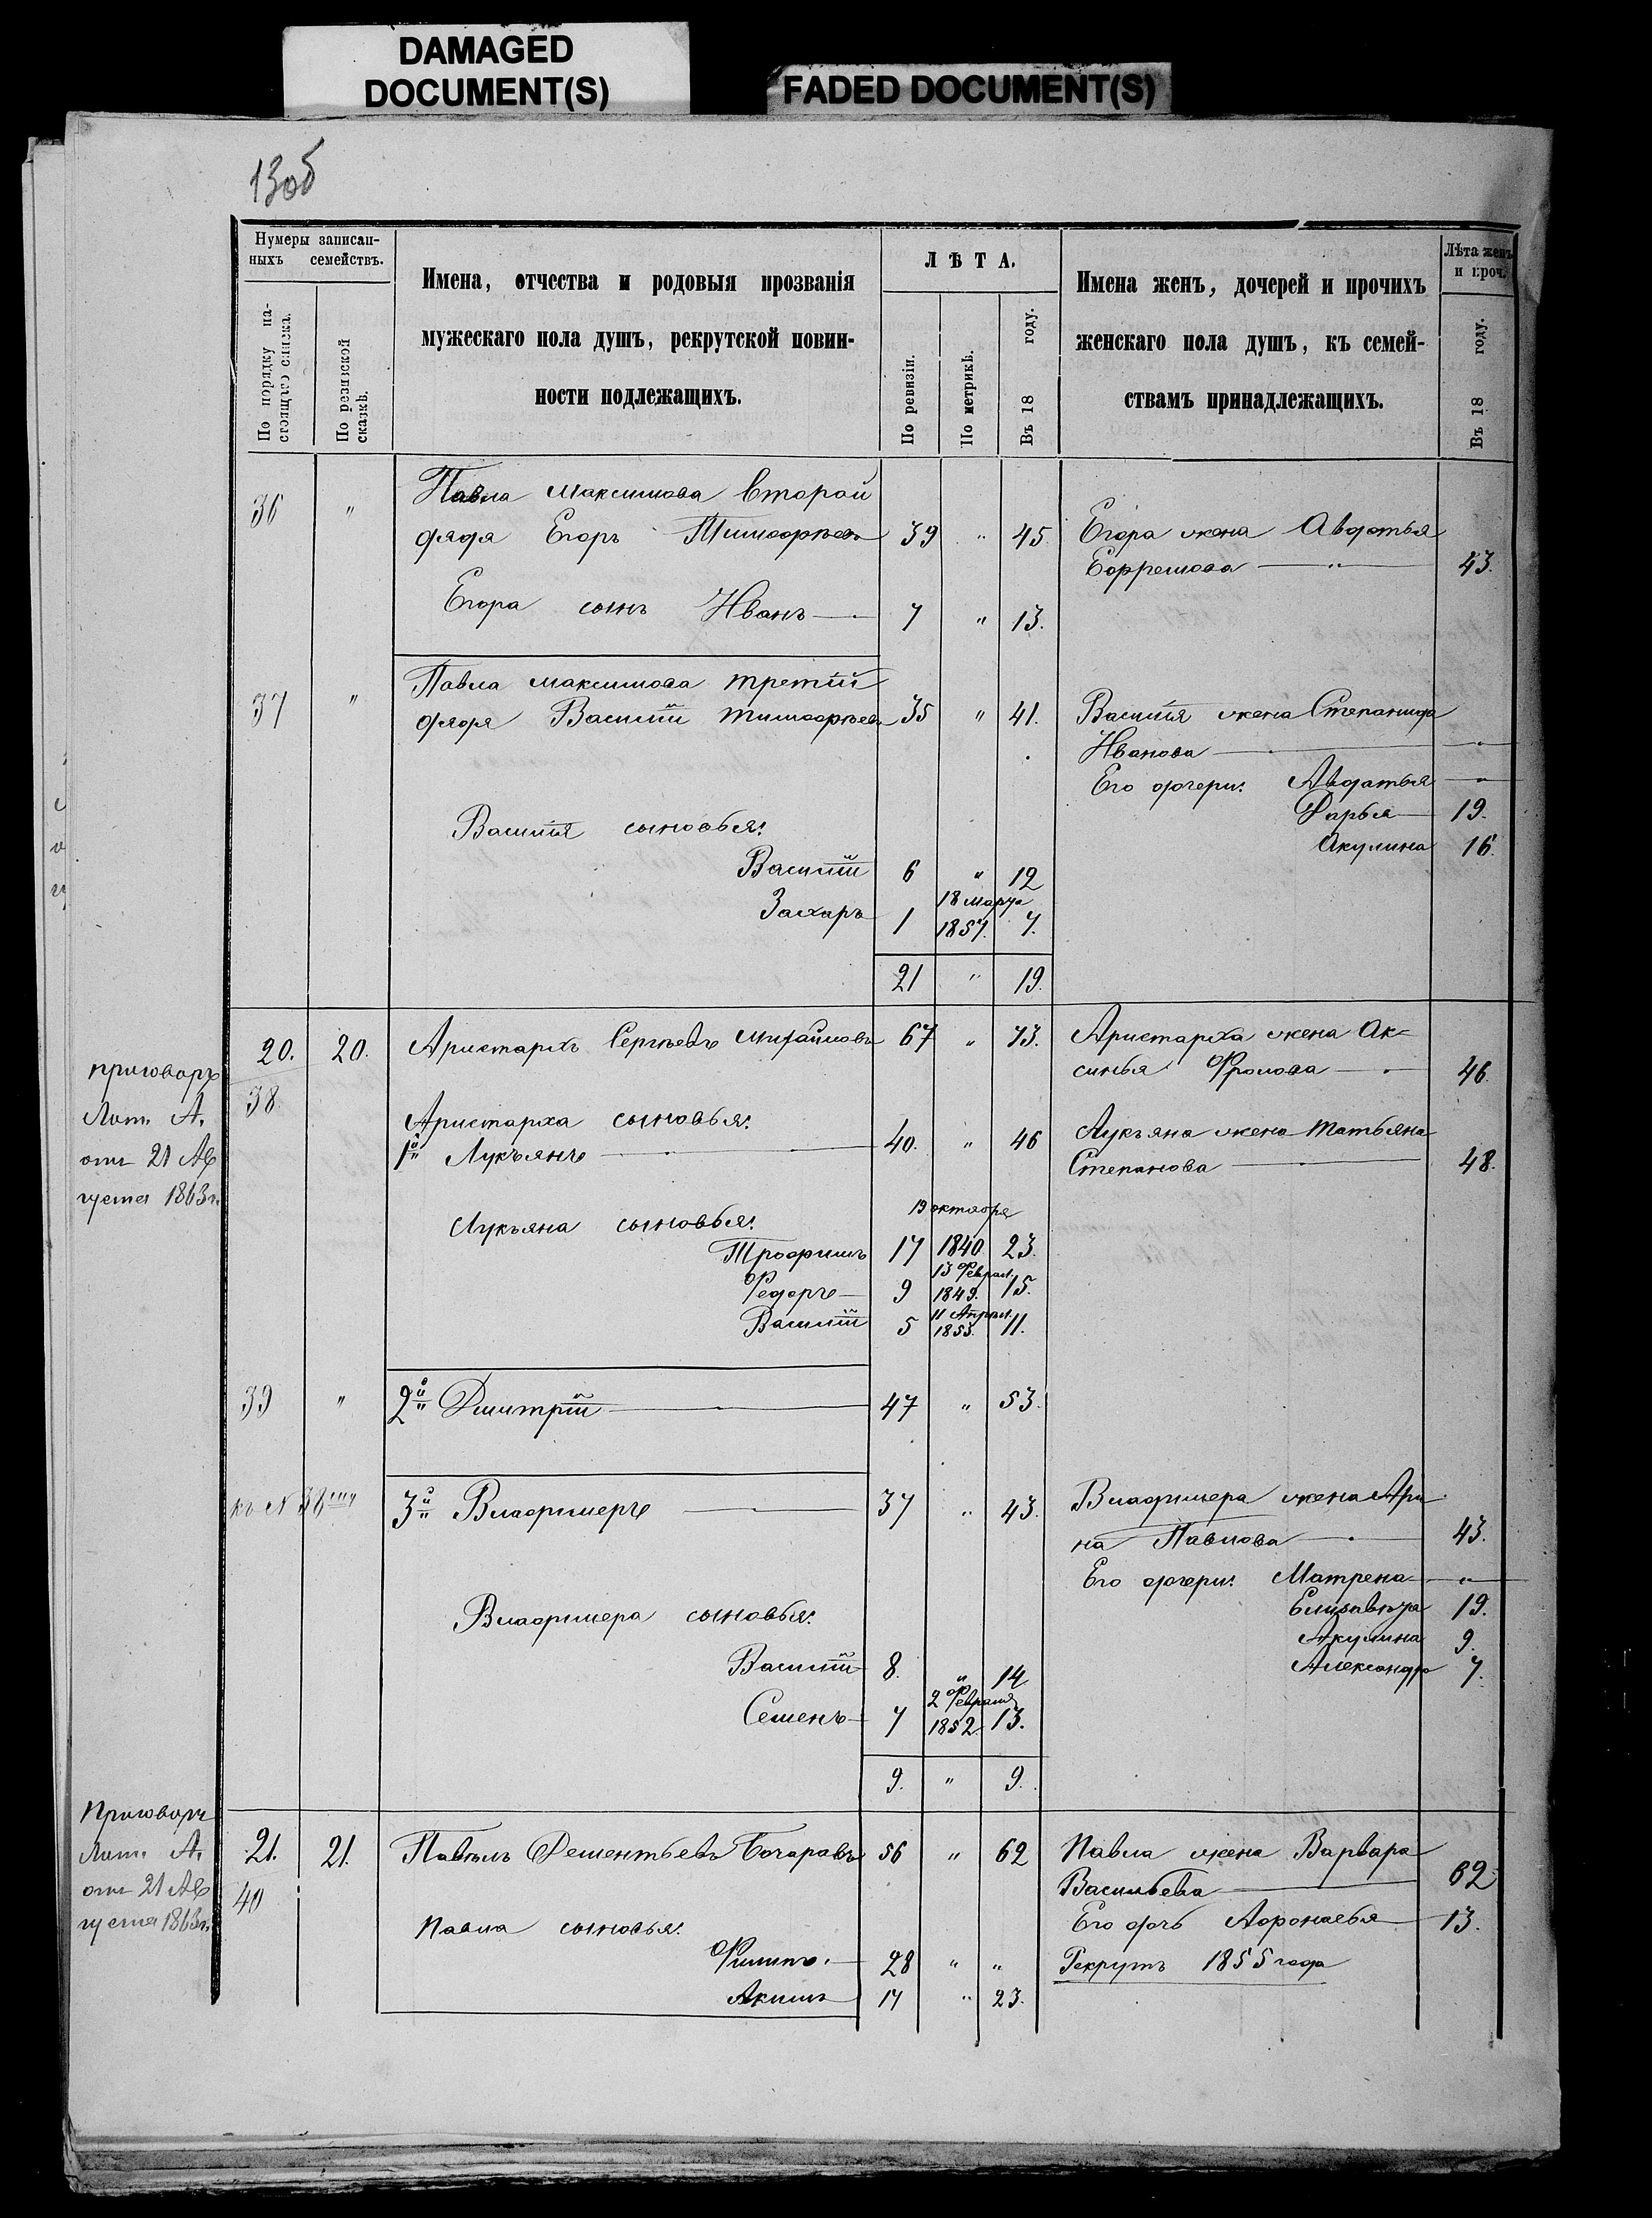 DAMAGED
DOCUMENT(S)
FADED DOCUMENT(S)
13об
Нумеры записан-
ныхъ семействъ.
По порядку на-
стоящаго списка.
По ревизской
сказкѣ.
Имена, отчества и родовыя прозванія
мужескаго пола душъ, рекрутской повин-
ности подлежащихъ.
ЛѢТА.
По ревизіи.
По метрикѣ.
Въ 18 году.
Имена женъ, дочерей и прочихъ
женскаго пола душъ, къ семей-
ствамъ принадлежащихъ.
Лѣта женъ
и проч.
Въ 18 году.
36 " Павла Максимова второй
дядя Егоръ Тимофѣевъ 39 " 45 Егора жена Авдотья
Ефремова " 43.
Егора сынъ Иванъ 7 " 13.
37 " Павла Максимова третій
дядя Василій Тимофѣевъ 35 " 41. Василія жена Степанида
Иванова "
Его дочери: Авдотья "
Дарья 19.
Василія сыновья:
Акулина 16.
Василій 6 " 12
Захаръ 1 18 Марта 1857. 7.
21 " 19.
приговоръ
Лит. А.
отъ 21 Ав
густа 1863 г.
20. 20. Аристархъ Сергѣевъ Михайловъ 67 " 73. Аристарха жена Ак-
синья Фролова 46.
38
Аристарха сыновья:
1й Лукьянъ 40. " 46 Лукьяна жена Татьяна
Степанова 48.
Лукьяна сыновья:
Трофимъ 17 19 октября 1840 23.
Федоръ 9 13 Феврал. 1849. 15.
Василій 5 11 Апрѣл. 1853. 11.
39 " 2й Дмитрій 47 " 53.
къ N 38му 3й Владимеръ 37 " 43. Владимера жена Ари
на Павлова 43.
Его дочери: Матрена "
Владимера сыновья:
Елизавета 19.
Акулина 9.
Василій 8. " 14
Александра 7.
Семенъ 7 2 Февраля 1852 13.
9. " 9.
Приговоръ
Лит. А.
отъ 21 Ав
густа 1863 г.
21. 21. Павелъ Дементьевъ Бочаровъ 56 " 62 Павла жена Варвара
Васильева 62
40
Его дочь Афонасья 13.
Павла сыновья:
Филипъ. 28 " " Рекрутъ 1855 года
Акимъ 17 " 23.